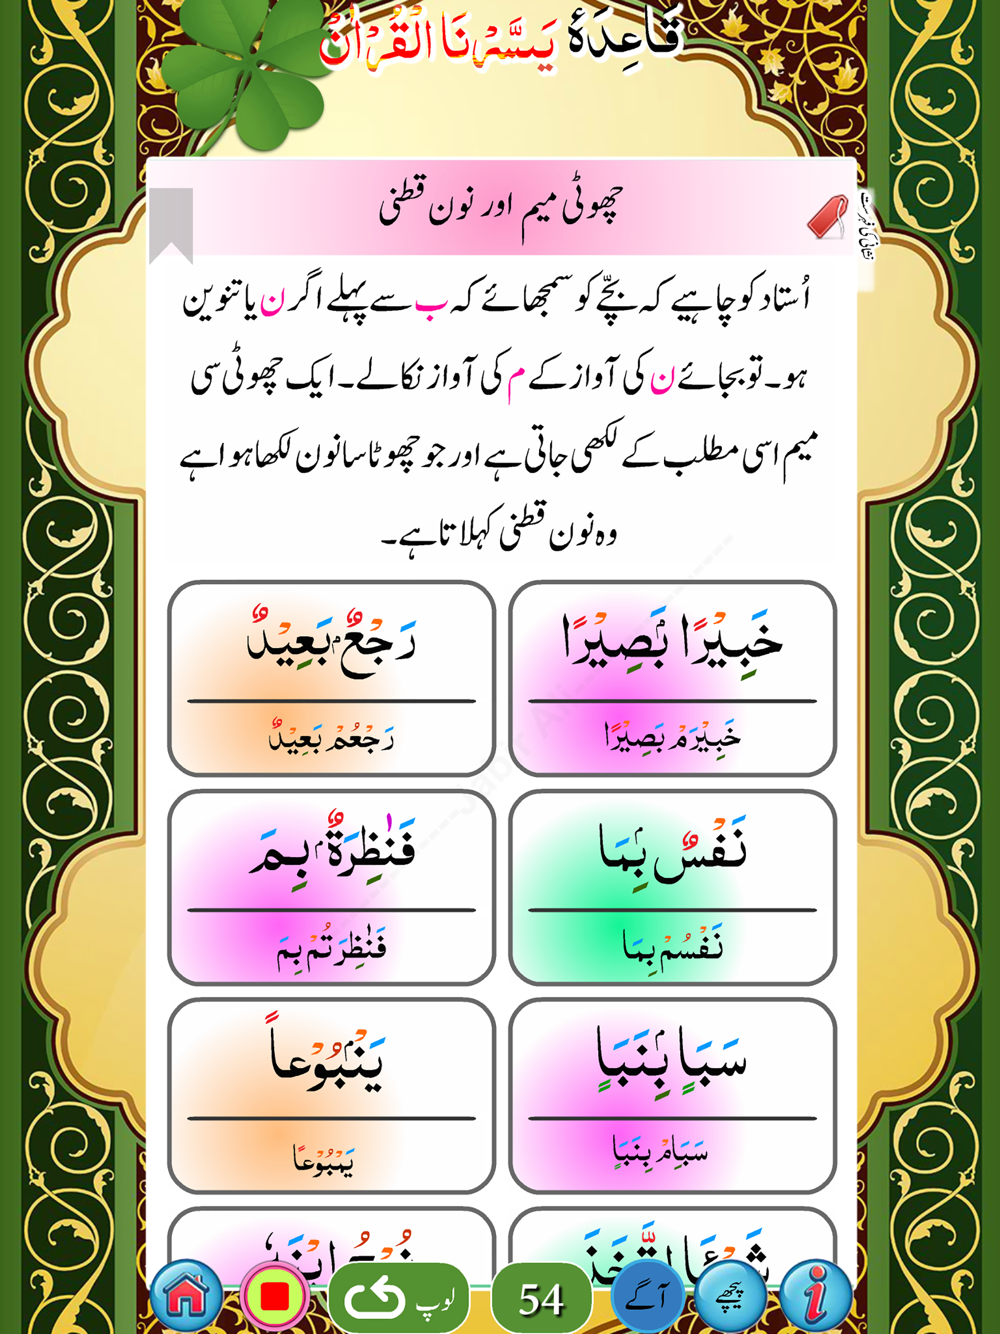 قَاعِدَۂ یَسَّرْنَا الْقُرْاٰنْ
چھوٹی میم اور نون قطنی
نشانی کی فہرست
اُستاد کو چاہیے کہ بچّے کو سمجھائے کہ ب سے پہلے اگر ن یا تنوین
ہو۔ تو بجائے ن کی آواز کے م کی آواز نکالے۔ ایک چھوٹی سی
میم اسی مطلب کے لکھی جاتی ہے اور جو چھوٹا سا نون لکھا ہوا ہے
وہ نون قطنی کہلاتا ہے۔
خَبِيْرًۢا بَصِيْرًا
خَبِيْرَمْ بَصِيْرًا
رَجْعٌۢ بَعِيْدٌ
رَجْعُمْ بَعِيْدٌ
نَفْسٌۢ بِمَا
نَفْسُمْ بِمَا
فَنٰظِرَةٌۢ بِمَ
فَنٰظِرَتُمْ بِمَ
سَبَاٍۭ بِنَبَاٍ
سَبَاِمْ بِنَبَاٍ
يَنْۢبُوْعاً
يَمْبُوْعًا
شَيْـًٔا اتَّخَذَ
نُوْحُ ابْنَهٗ
لوپ
54
آگے
پیچھے